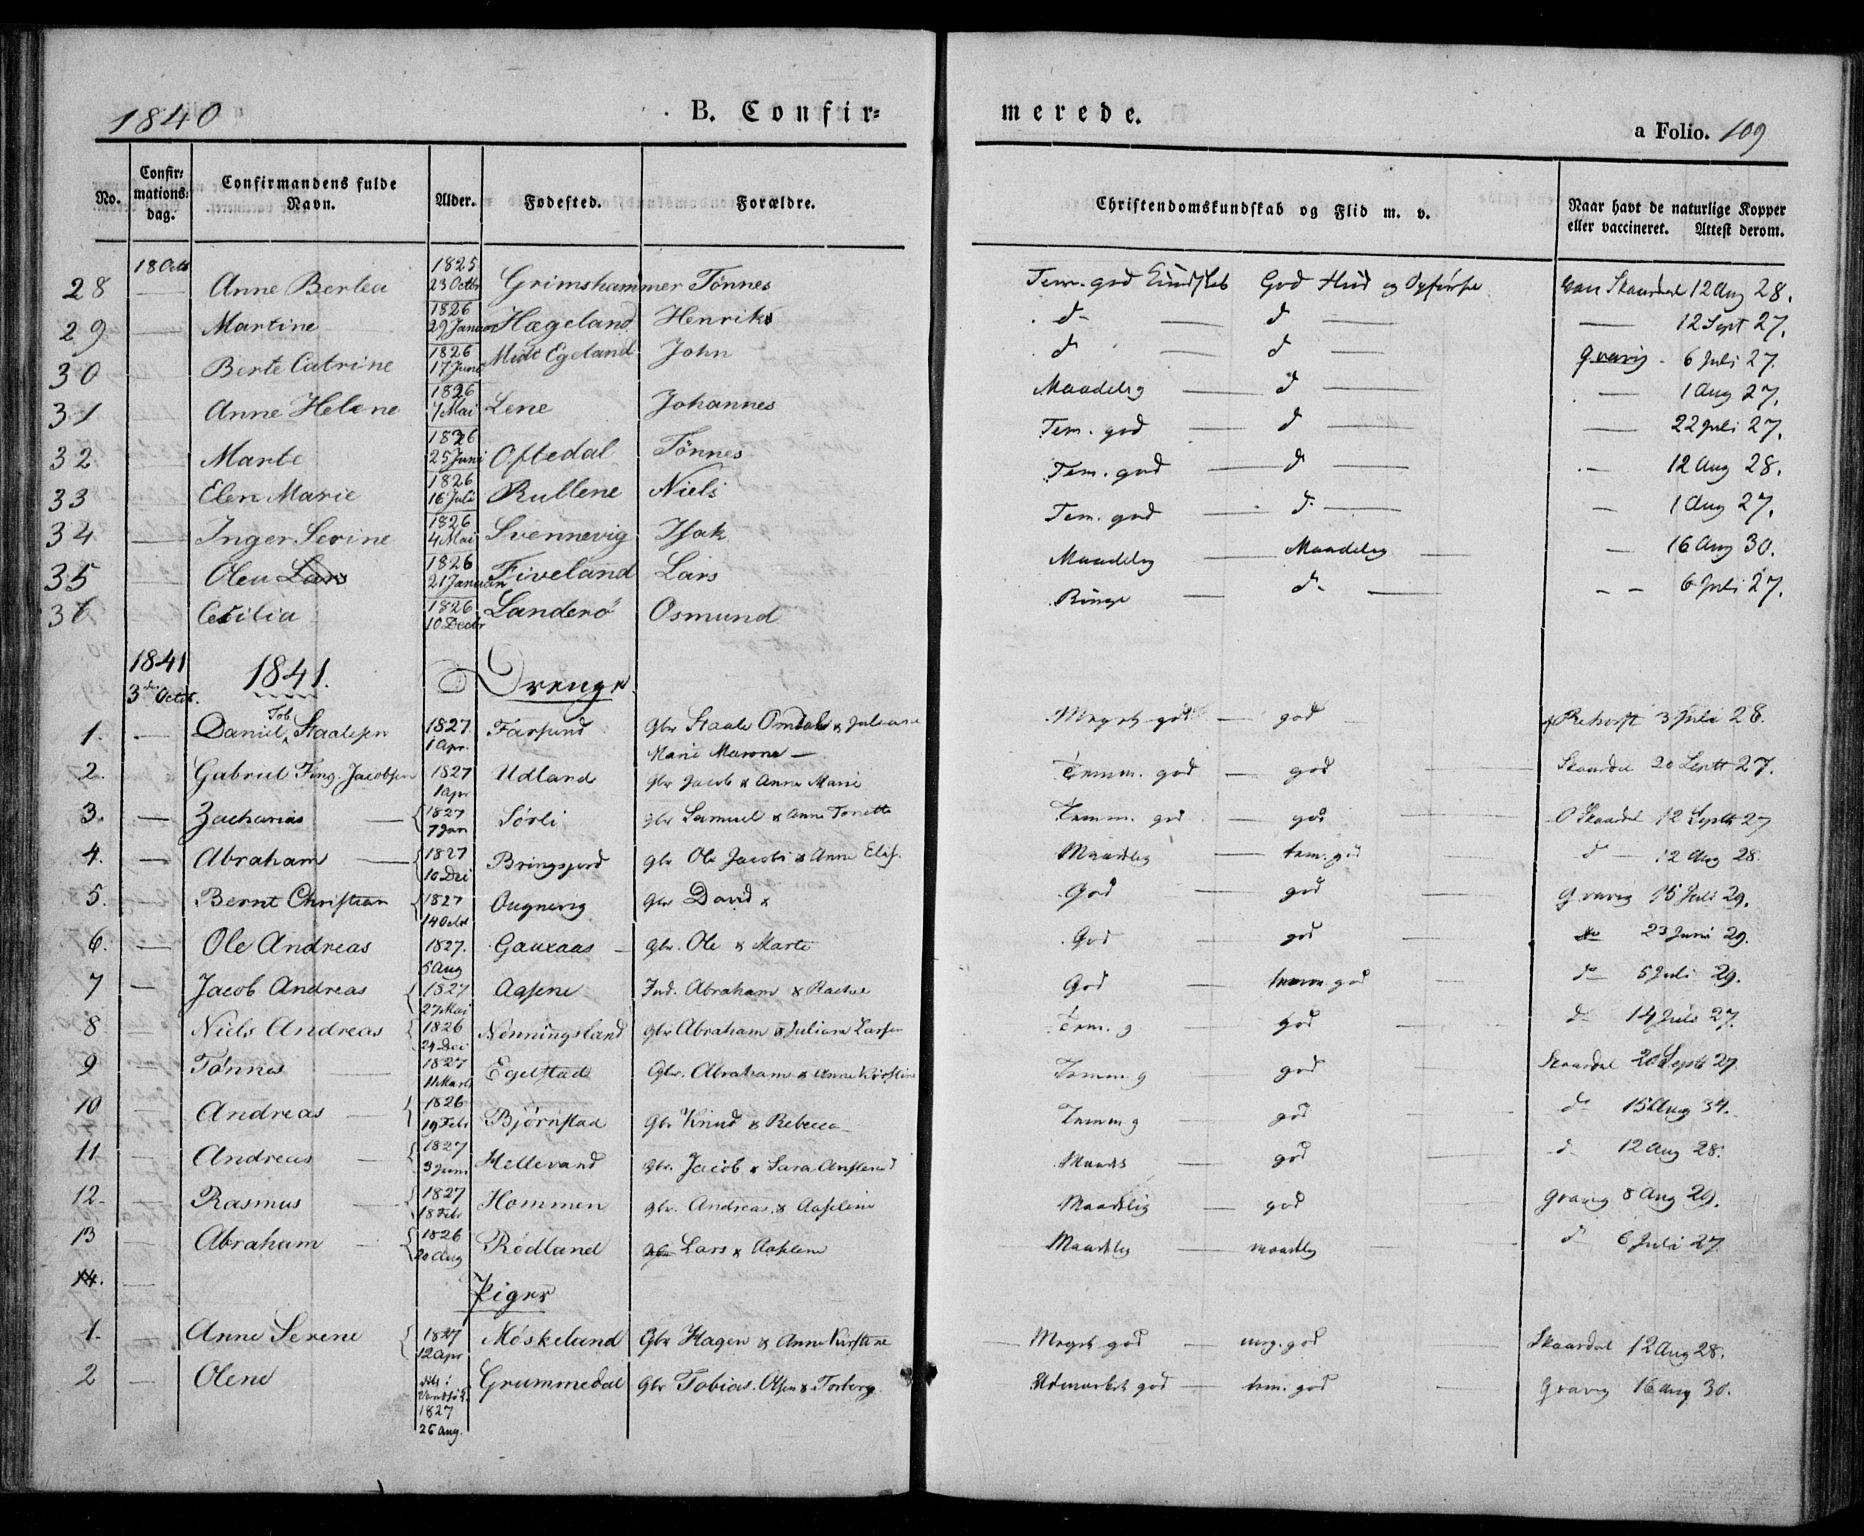 1840 B. Confir= merede. a Folio. 109
No. Confirmations: dag. Confirmandens fulde Navn. Alder. Fodested. Forældre. Christendomskundskab og Flid m. v. Naar havt de naturlige Kopper eller vaccineret. Attest derom.
18 Octb 1825
28 — Anne Bertea 23 Octbr Grimshammer Tønnes Tem. god Kundskab God Flid og Opførsel Skaardal 12 Aug 28.
29 — Martine 1826 29 Januar Hægeland Henrik d — d — — 12 Sept 27.
30 — Berte Catrine 1826 17 Juni Midt Egeland John d — d — Gravig 6 Juli 27.
31 — Anne Helene 1826 7 Mai Lene Johannes Maadelig — d — — 1 Aug 27.
32 — Marte 1826 25 Juni Oftedal Tønnes Tem. god — d — — 22 Juli 27.
33 — Elen Marie 1826 16 Juli Rullene Niels Tem. god — d — — 12 Aug 28.
34 — Inger Serine 1826 4 Mai Svennevig Isak Tem. god — d — — 1 Aug 27.
35 — Olea Lars 1826 21 Januar Fiveland Lars Maadelig — Maadelig — — 16 Aug 30.
36 Cecilia 1826 10 Decbr Landerö Osmund Ringe d — — — 6 Juli 27.
1841 3die Octob. 1841. Drenge
1. — Daniel Tob. Staalesen 1827 1 Apr. Farsund Gbr Staale Omdal & Juliane Marie Marone — Meget god — god 3 Juli 28.
2. Gabriel Jacobsen 1827 1 Apr Udland Gbr Jacob & Anne Marie Temm. god — god Skaardal 20 Septb 27.
3. — Zacharias — 1827 7 Jan Sørli Gbr Samuel & Anne Torette Temm. god — god O Skaardal 12 Septb 27
4. — Abraham — 1827 10 Dei Bringsjord Gbr Ole Jacobs & Anne Elis. Maadelig — tem. god d — 12 Aug 28.
5. — Bernt Christian 1827 14 Octbr Ougnevig Gbr David & God — god Gravig 15 Juli 29.
6. — Ole Andreas 1827. 5 Aug Gauxaas — Gbr. Ole & Marte God — god 23 Juni 29.
7 — Jacob Andreas 1827 27 Mai Aasene Ind. Abraham & Rachel God — temm. god d 5 Juli 29.
8 — Niels Andreas 1826 29 Dei Nenningsland Gbr Abraham & Juliane Larsen Tem. g god d 14 Juli 27.
9 Tønnes — 1827 11 Marts Egelstad Gbr. Abraham & Anne Kirstine Temm g god Skaardal 20 Septb 27.
10 — Andreas — 1826 19 Febr Bjørnstad Gbr Knud & Rebecca Temm g god d 15 Aug 34.
11 — Andreas — 1827 3 Juni Hellevand Gbr. Jacob & Sara Maadl — god d 12 Aug 28.
12 — Rasmus — 1827 18 Febr Hommen Gbr. Andreas & Aaselene Maadelig — god Gravig 8 Aug 29.
13 — Abraham — 1826 20 Aug Rødland Lars & Aaslene Maadelig — maadelig d 6 Juli 27
14. —
Piger
1. — Anne Serene 1827 12 Apr Møskeland Gbr Hagen & Anne Kirstine — Meget god — meg. god Skaardal 12 Aug 28.
2 — Olene 1827 26 Aug. Grummedal Gbr Tobias Olsen & Torborg. Udmærket god — tem. god — Gravig 16 Aug 30.